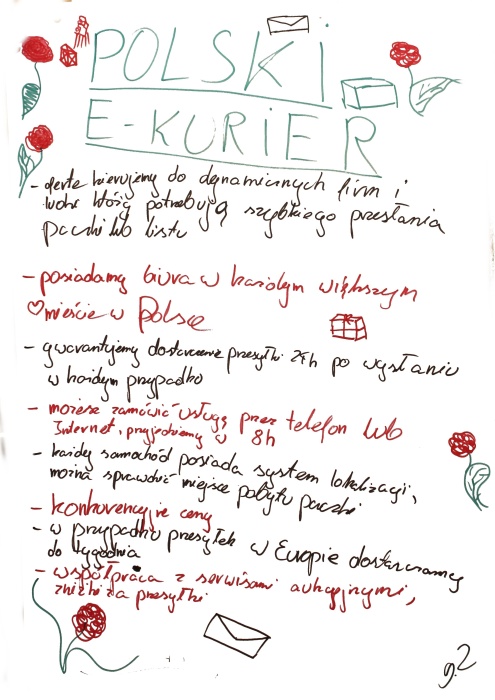 POLSKi
E-KURiER
- ofertę kierujemy do dynamicznych firm i
ludzi którzy potrzebują szybkiego przesłania
paczki lub listu
- posiadamy biura w każdym większym
mieście w Polsce
- gwarantujemy dostarczenie przesyłki 24h po wysłaniu
w każdym przypadku
- możesz zamówić usługę przez telefon lub
Internet, przyjedziemy w 8h
- każdy samochód posiada system lokalizacji,
można sprawdzić miejsce pobytu paczki
- konkurencyjne ceny
- w przypadku przesyłek w Europie dostarczamy
do tygodnia
- współpraca z serwisami aukcyjnymi,
zniżki za przesyłki
g.2